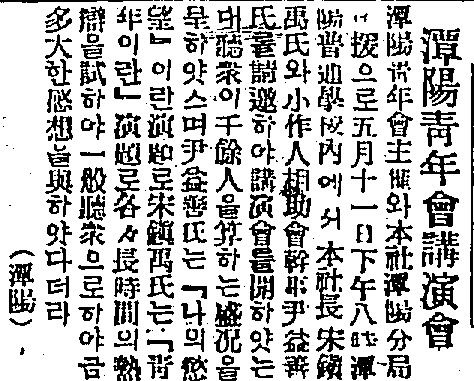 潭陽靑年會講演會
潭陽靑年會主催와本社潭陽分局
后援으로五月十一日下午八時潭
陽普通學校內에서本社長宋鎭
禹氏와小作人相助會幹事尹益善
氏를請邀하야講演會를開하얏는
대聽衆이千餘人을算하는盛況을
呈하얏스며尹益善氏는『나의慾
望』이란演題로宋鎭禹氏는『靑
年이란』演題로各各長時間의熱
辯을試하야一般聽衆으로하야금
多大한感想을與하얏다더라
(潭陽)